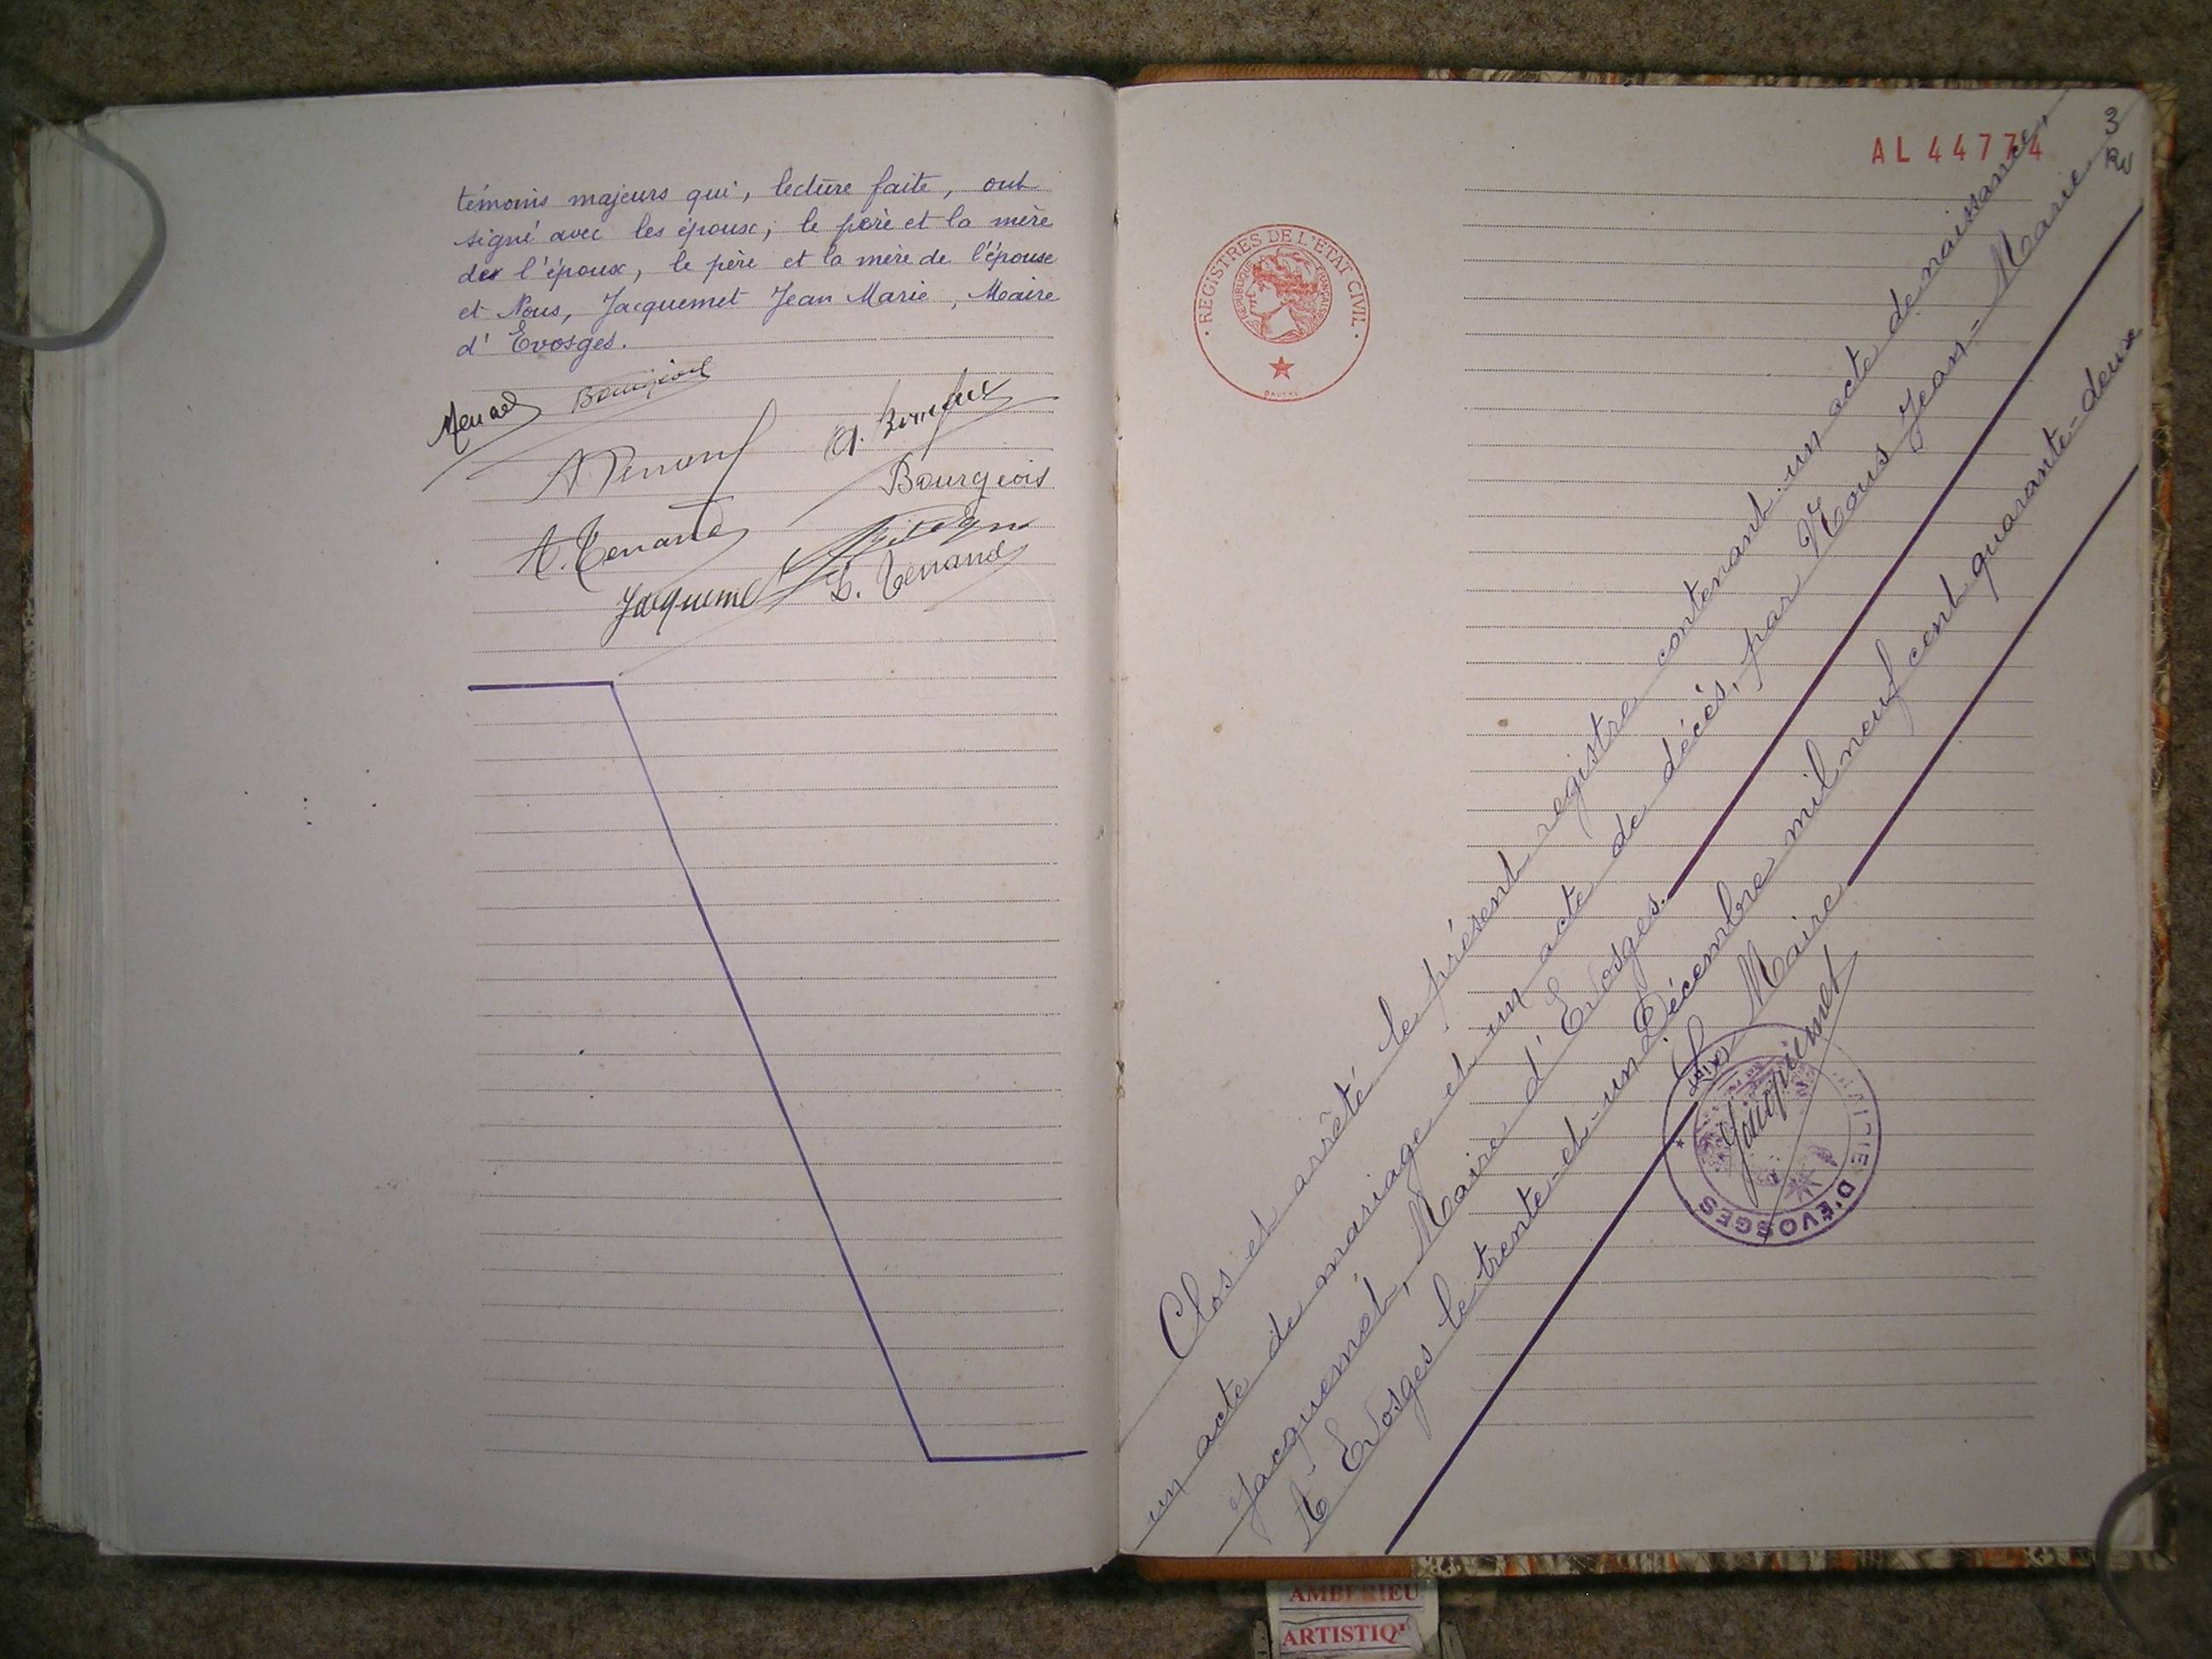 témoins majeurs qui, lecture faite, ont
signé avec les époux, le père et la mère
de l'époux, le père et la mère de l'épouse
et Nous, Jacquemet Jean Marie, Maire
d'Evosges.
Bourgeois
Jacquemet
AL 44774
3
REGISTRES DE L'ETAT CIVIL
REPUBLIQUE FRANÇAISE
Clos et arrêté le présent registre contenant un acte de naissance,
un acte de mariage et un acte de décès, par Nous Jean-Marie
Jacquemet, Maire d'Evosges.
A Evosges le trente-et-un Décembre mil neuf cent quarante-deux
Le Maire
Jacquemet
MAIRIE D'ÉVOSGES
AMBERIEU
ARTISTIQ